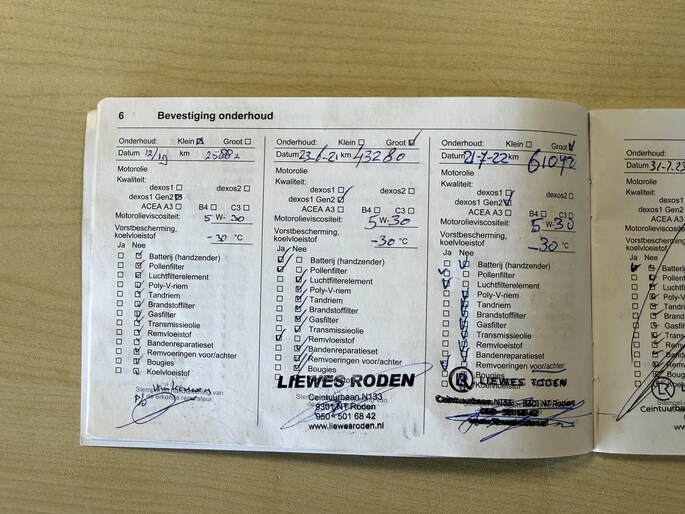 6 Bevestiging onderhoud
Onderhoud: Klein Groot
Datum 12/19 km 25882
Motorolie
Kwaliteit:
dexos1 dexos2
dexos1 Gen2
ACEA A3 B4 C3
Motorolieviscositeit: 5 W- 30
Vorstbescherming,
koelvloeistof -30 °C
Ja Nee
Batterij (handzender)
Pollenfilter
Luchtfilterelement
Poly-V-riem
Tandriem
Brandstoffilter
Gasfilter
Transmissieolie
Remvloeistof
Bandenreparatieset
Remvoeringen voor/achter
Bougies
Koelvloeistof
Onderhoud: Klein Groot
Datum 23-6-21 km 43280
Motorolie
Kwaliteit:
dexos1 dexos2
dexos1 Gen2
ACEA A3 B4 C3
Motorolieviscositeit: 5 W-30
Vorstbescherming,
koelvloeistof -30 °C
Ja Nee
Batterij (handzender)
Pollenfilter
Luchtfilterelement
Poly-V-riem
Tandriem
Brandstoffilter
Gasfilter
Transmissieolie
Remvloeistof
Bandenreparatieset
Remvoeringen voor/achter
Bougies
LIEWES RODEN
Ceintuurbaan N133
9301 NT Roden
050 - 501 68 42
www.liewesroden.nl
Onderhoud: Klein Groot
Datum 21-7-22 km 61042
Motorolie
Kwaliteit:
dexos1 dexos2
dexos1 Gen2
ACEA A3 B4 C3
Motorolieviscositeit: 5 W-30
Vorstbescherming,
koelvloeistof -30 °C
Ja Nee
Batterij (handzender)
Pollenfilter
Luchtfilterelement
Poly-V-riem
Tandriem
Brandstoffilter
Gasfilter
Transmissieolie
Remvloeistof
Bandenreparatieset
Remvoeringen voor/achter
Bougies
LIEWES RODEN
Ceintuurbaan N133 - 9301 NT Roden
Onderhoud:
Datum 31-7-23
Motorolie
Kwaliteit:
ACEA
Ja Nee